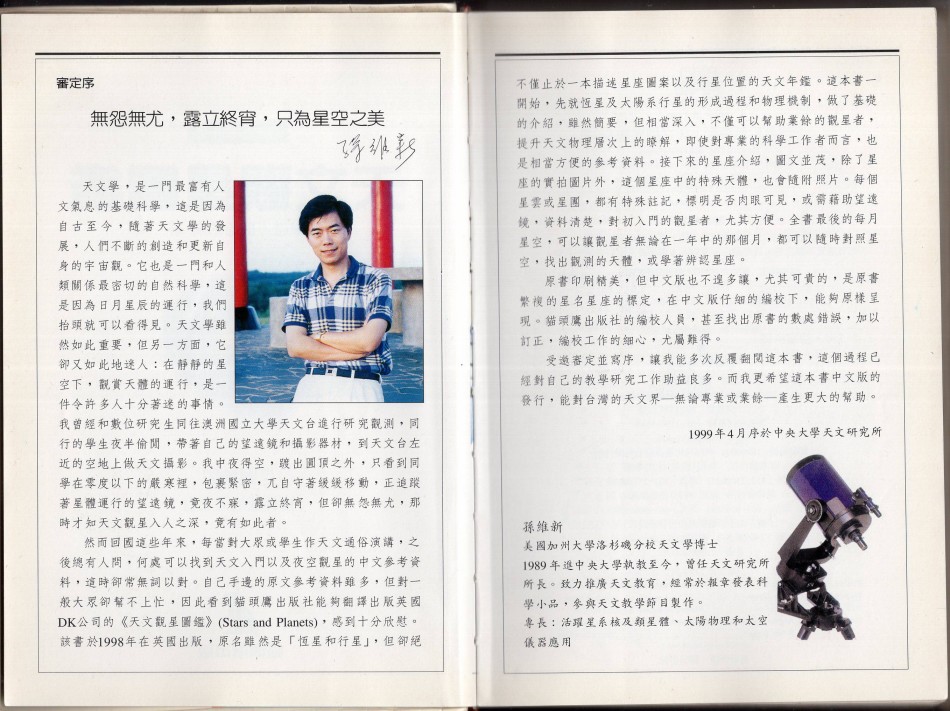 審定序
無怨無尤，露立終宵，只為星空之美
孫維新
天文學，是一門最富有人
文氣息的基礎科學，這是因為
自古至今，隨著天文學的發
展，人們不斷的創造和更新自
身的宇宙觀。它也是一門和人
類關係最密切的自然科學，這
是因為日月星辰的運行，我們
抬頭就可以看得見。天文學雖
然如此重要，但另一方面，它
卻又如此地迷人：在靜靜的星
空下，觀賞天體的運行，是一
件令許多人十分著迷的事情。
我曾經和數位研究生同往澳洲國立大學天文台進行研究觀測，同
行的學生夜半偷閒，帶著自己的望遠鏡和攝影器材，到天文台左
近的空地上做天文攝影。我中夜得空，踱出圓頂之外，只看到同
學在零度以下的嚴寒裡，包裹緊密，兀自守著緩緩移動，正追蹤
著星體運行的望遠鏡，竟夜不寐，露立終宵，但卻無怨無尤，那
時才知天文觀星入人之深，竟有如此者。
然而回國這些年來，每當對大眾或學生作天文通俗演講，之
後總有人問，何處可以找到天文入門以及夜空觀星的中文參考資
料，這時卻常無詞以對。自己手邊的原文參考資料雖多，但對一
般大眾卻幫不上忙，因此看到貓頭鷹出版社能夠翻譯出版英國
DK公司的《天文觀星圖鑑》(Stars and Planets)，感到十分欣慰。
該書於1998年在英國出版，原名雖然是「恆星和行星」，但卻絕
不僅止於一本描述星座圖案以及行星位置的天文年鑑。這本書一
開始，先就恆星及太陽系行星的形成過程和物理機制，做了基礎
的介紹，雖然簡要，但相當深入，不僅可以幫助業餘的觀星者，
提升天文物理層次上的瞭解，即使對專業的科學工作者而言，也
是相當方便的參考資料。接下來的星座介紹，圖文並茂，除了星
座的實拍圖片外，這個星座中的特殊天體，也會隨附照片。每個
星雲或星團，都有特殊註記，標明是否肉眼可見，或需藉助望遠
鏡，資料清楚，對初入門的觀星者，尤其方便。全書最後的每月
星空，可以讓觀星者無論在一年中的那個月，都可以隨時對照星
空，找出觀測的天體，或學著辨認星座。
原書印刷精美，但中文版也不遑多讓，尤其可貴的，是原書
繁複的星名星座的標定，在中文版仔細的編校下，能夠原樣呈
現。貓頭鷹出版社的編校人員，甚至找出原書的數處錯誤，加以
訂正，編校工作的細心，尤屬難得。
受邀審定並寫序，讓我能多次反覆翻閱這本書，這個過程已
經對自己的教學研究工作助益良多。而我更希望這本書中文版的
發行，能對台灣的天文界—無論專業或業餘—產生更大的幫助。
1999年4月序於中央大學天文研究所
孫維新
美國加州大學洛杉磯分校天文學博士
1989年進中央大學執教至今，曾任天文研究所
所長。致力推廣天文教育，經常於報章發表科
學小品，參與天文教學節目製作。
專長：活躍星系核及類星體、太陽物理和太空
儀器應用